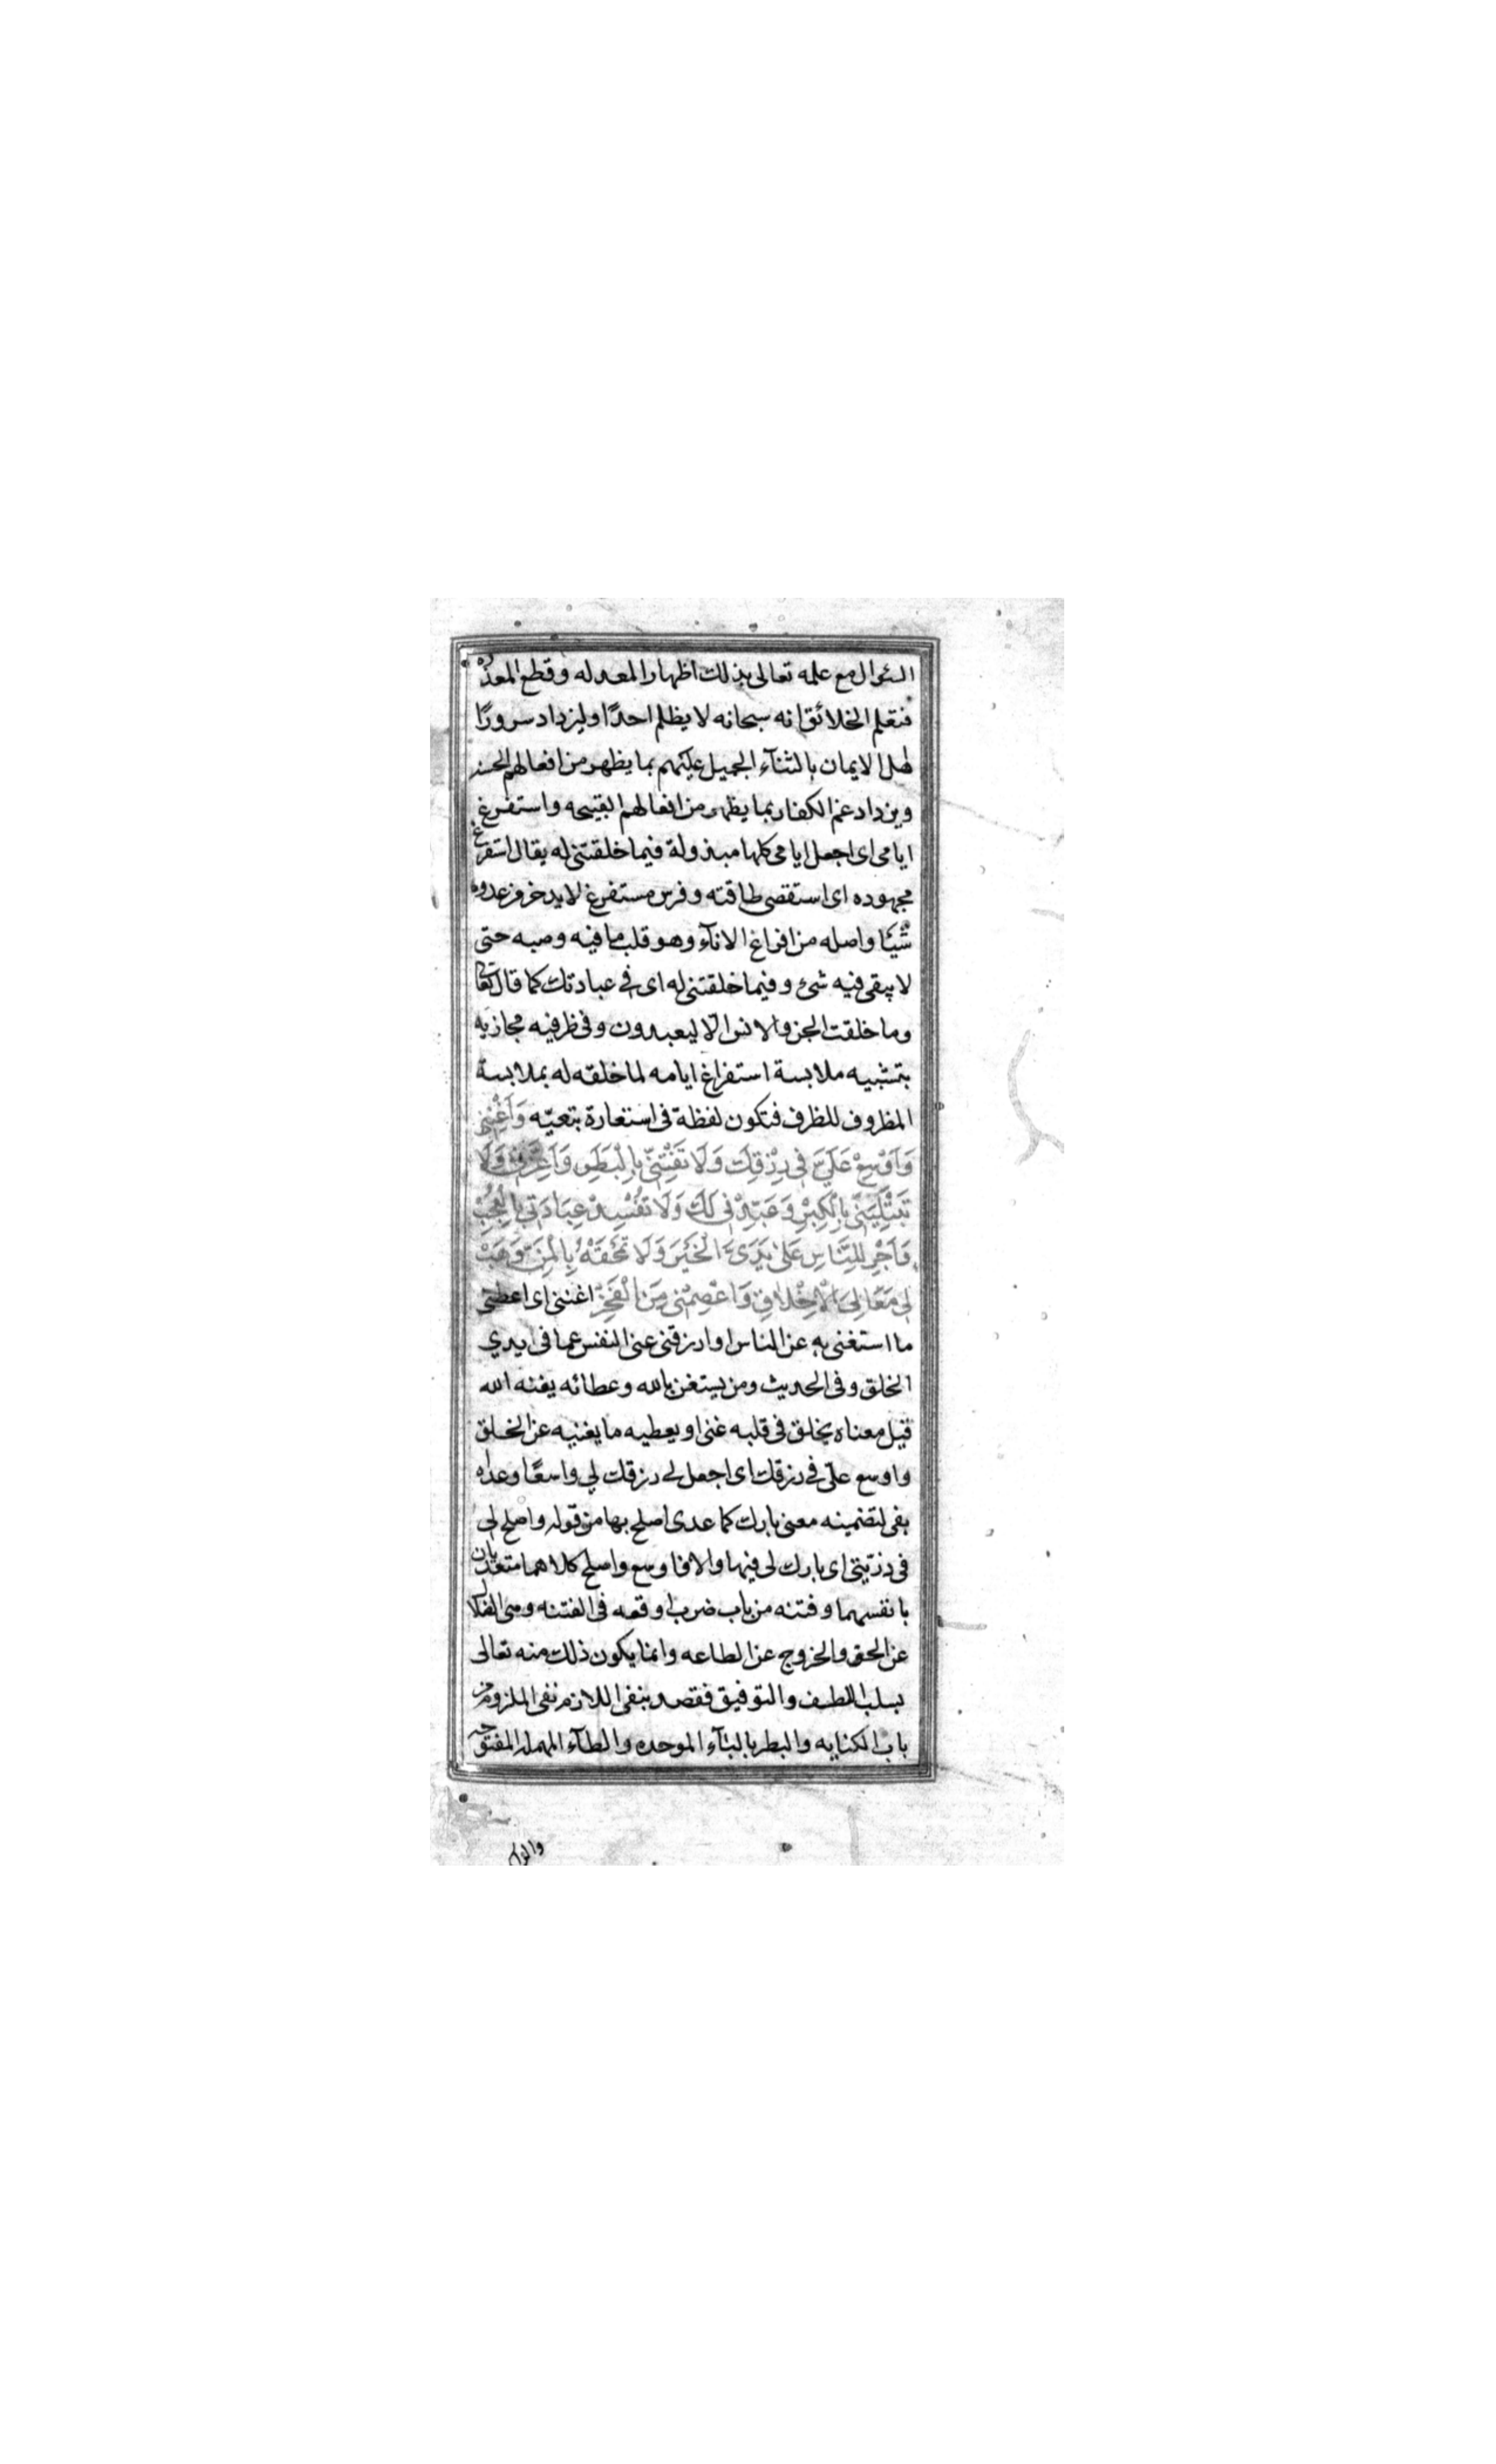 السؤال مع علمه تعالى بذلك اظهار المعدله وقطع المعذره
فتعلم الخلائق انه سبحانه لا يظلم احدًا وليزداد سرورًا
اهل الايمان بالثنآء الجميل عليهم بما يظهر من افعالهم الحسنه
ويزداد غم الكفار بما يظهر من افعالهم القبيحه واستفرغ
ايامى اى اجعل ايامى كلها مبذولة فيما خلقتنى له يقال استفرغ
مجهوده اى استقصى طاقته وفرس مستفرغ لا يدخر من عدوه
شيئا واصله من افراغ الانآء وهو قلب ما فيه وصبه حتى
لا يبقى فيه شئ وفيما خلقتنى له اى فى عبادتك كما قال تعالى
وما خلقت الجن والانس الّا ليعبدون وفى ظرفيه مجازيه
بتشبيه ملابسة استفراغ ايامه لما خلقه له بملابسة
المظروف للظرف فتكون لفظة فى استعارة تبعيّه وَاَغْنِنِى
وَاَوْسِعْ عَلَيَّ فِى رِزْقِكَ وَلَا تَفْتِنِّى بِالْبَطَرِ وَاَعِزَّنِى وَلَا
تَبْتَلِيَنِّى بِالْكِبْرِ وَعَبِّدْنِى لَكَ وَلَا تُفْسِدْ عِبَادَتِى بِالْعُجْبِ
وَاَجْرِ لِلنَّاسِ عَلَىٰ يَدَىَّ الْخَيْرَ وَلَا تَمْحَقْهُ بِالْمَنِّ وَهَبْ
لِى مَعَالِىَ الْاَخْلَاقِ وَاعْصِمْنِى مِنَ الْفَخْرِ اغننى اى اعطنى
ما استغنى به عن الناس او ارزقنى غنى النفس عما فى ايدي
الخلق وفى الحديث ومن يستغن بالله وعطائه يغنه الله
قيل معناه يخلق فى قلبه غنى او يعطيه ما يغنيه عن الخلق
واوسع علىّ فى رزقك اى اجعل لى رزقك لي واسعًا وعداه
بفى لتضمينه معنى بارك كما عدى اصلح بها من قوله واصلح لى
فى ذرّيتى اى بارك لى فيها والا فاوسع واصلح كلاهما متعديان
بانفسهما وفتنه من باب ضرب اوقعه فى الفتنه وهى الضلال
عن الحق والخروج عن الطاعه وانما يكون ذلك منه تعالى
بسلب اللطف والتوفيق فقصد بنفى اللازم نفى الملزوم من
باب الكنايه والبطر بالبآء الموحده والطآء المهمله المفتوحه